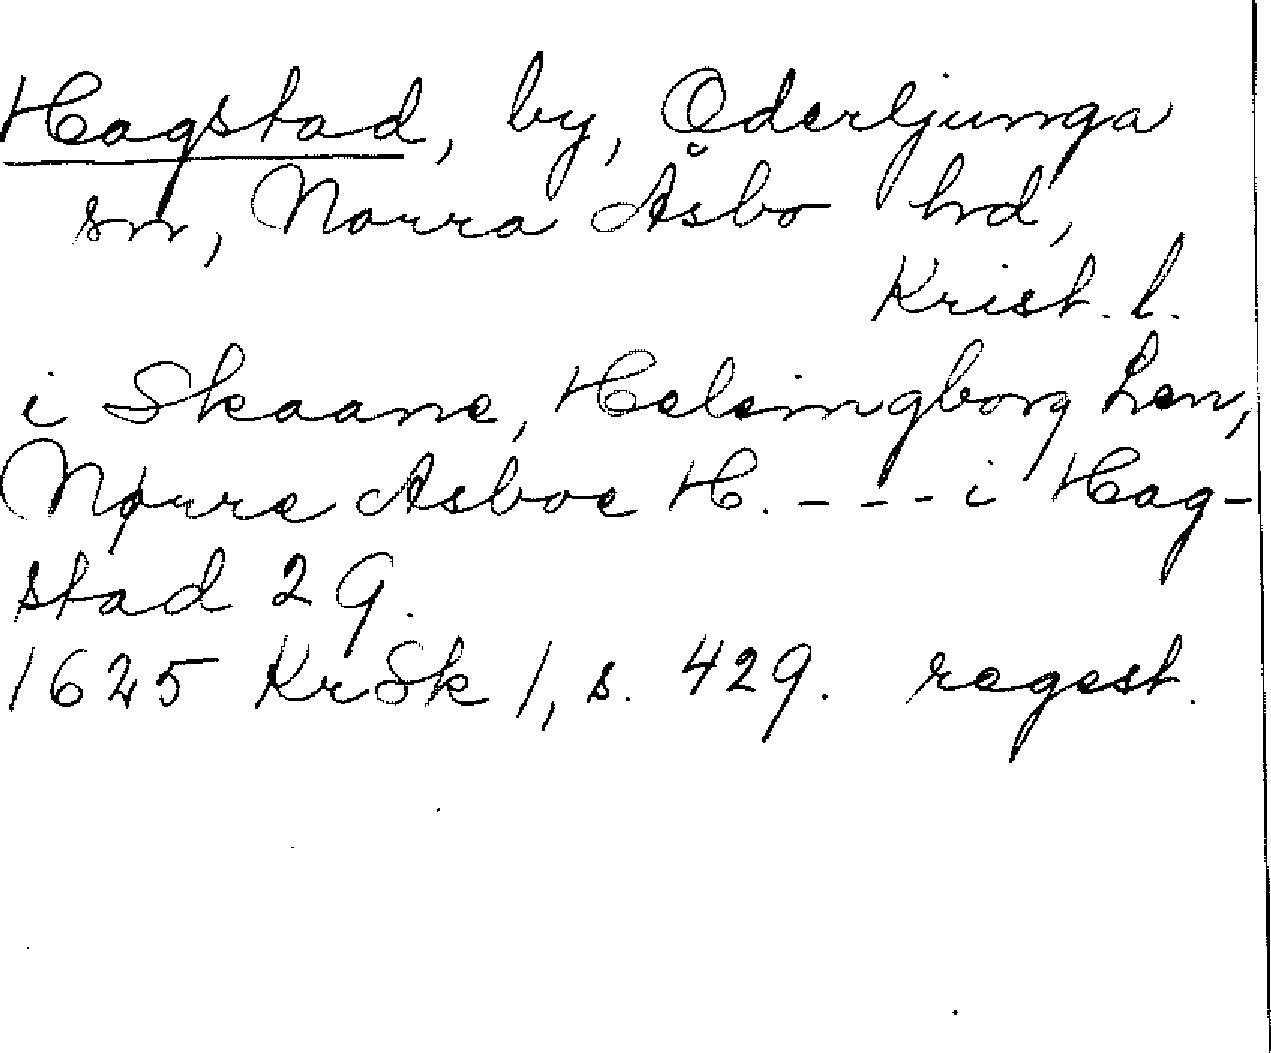 Hagstad, by, Oderljunga
sn, Norra Åsbo hd,
Krist. l.
i Skaane, Helsingborg Len,
Nørre Asboe H. - - - i Hag-
stad 2 G.
1625 KrSk 1, s. 429. regest.